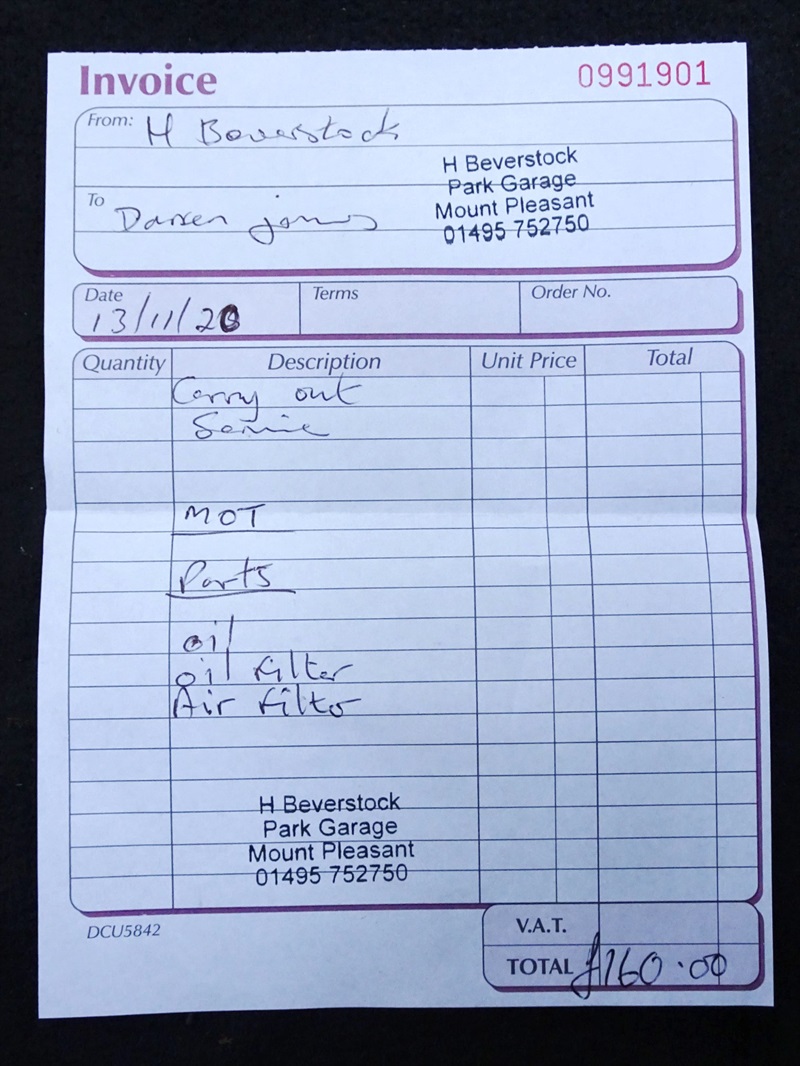 Invoice
0991901
From: H Beverstock
H Beverstock
Park Garage
Mount Pleasant
01495 752750
To Darren jones
Date
13/11/20
Terms
Order No.
Quantity Description Unit Price Total
Carry out
Service
MOT
Parts
oil
oil filter
Air filter
H Beverstock
Park Garage
Mount Pleasant
01495 752750
DCU5842
V.A.T.
TOTAL £160.00